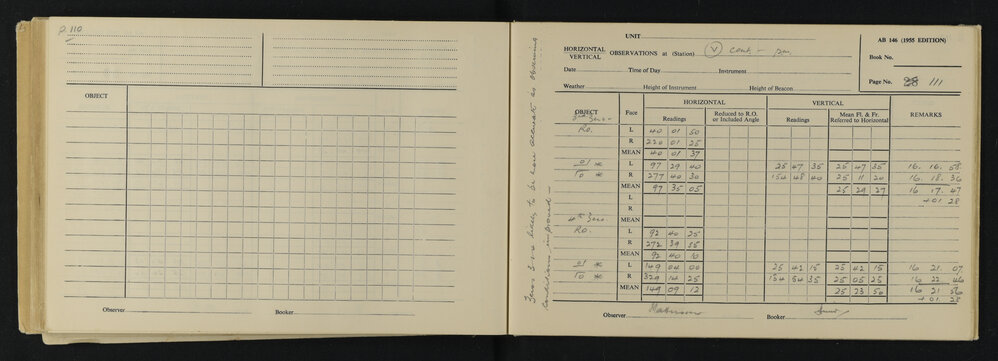 P 110
OBJECT
Observer
Booker
Zeros 3 & 4 likely to be more accurate as observing
conditions improved —
UNIT
AB 146 (1955 EDITION)
HORIZONTAL
VERTICAL OBSERVATIONS at (Station) (V) cont -
Book No.
Date Time of Day Instrument
Page No. 28 111
Weather Height of Instrument Height of Beacon
OBJECT Face HORIZONTAL VERTICAL REMARKS
Readings Reduced to R.O. or Included Angle Readings Mean Fl. & Fr. Referred to Horizontal
3rd Zero -
RO. L 40 01 50
R 220 01 25
MEAN 40 01 37
L 97 29 40 25 47 35 25 47 35 16. 16. 58
To * R 277 40 30 154 48 40 25 11 20 16. 18. 36
MEAN 97 35 05 25 29 27 16 17. 47
L +01 28
R
4th Zero MEAN
RO. L 92 40 25
R 272 39 55
MEAN 92 40 10
L 149 04 00 25 42 15 25 42 15 16 21. 07
To * R 329 14 25 154 54 35 25 05 25 16 22 46
MEAN 149 09 12 25 23 50 16 21 56
+01. 28
Observer
Booker